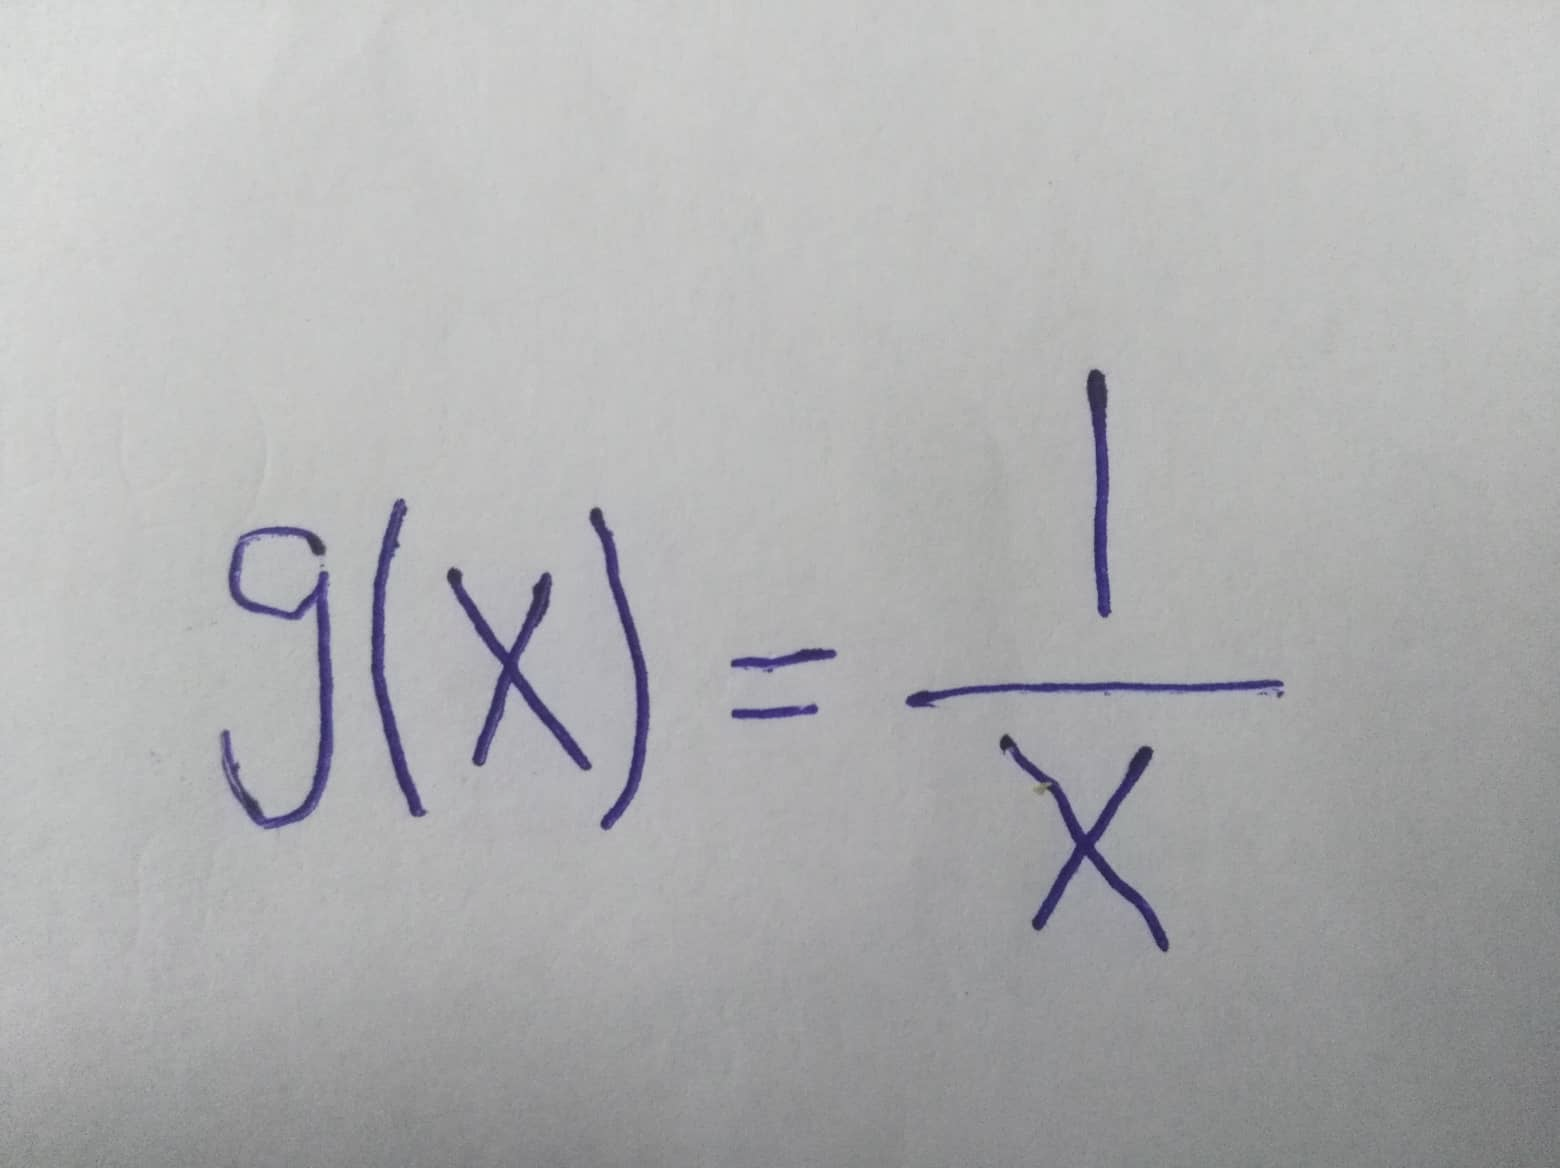 g(x) = 1/x